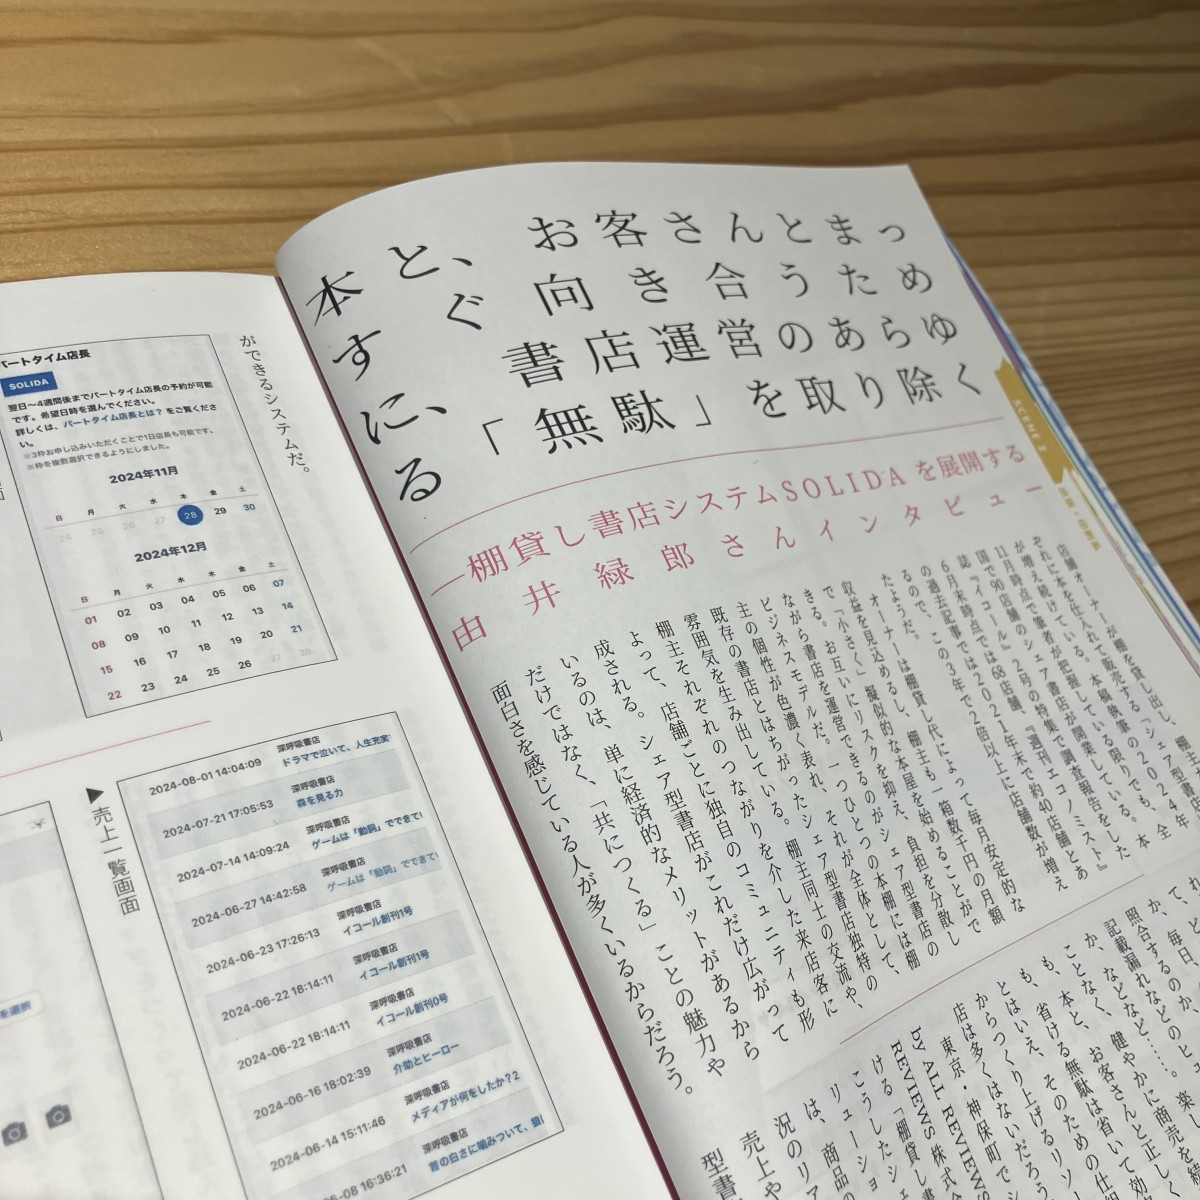 本と、お客さんとまっ
すぐに向き合うため
に、書店運営のあらゆ
る「無駄」を取り除く
―棚貸し書店システムSOLIDAを展開する
由井緑郎さんインタビュー
SCENE 2
店舗オーナーが棚を貸し出し、棚主
ぞれに本を仕入れて販売する「シェア型書店」
が増え続けている。本稿執筆の2024年
11月時点で筆者が把握している限りでも、全
国で90店舗のシェア書店が開業している。本
誌『イコール』2号の特集で調査報告をした
6月末時点では68店舗、『週刊エコノミスト』
の過去記事では2021年末で約40店舗とあ
るので、この3年で2倍以上に店舗数が増え
たようだ。
オーナーは棚貸し代によって毎月安定的な
収益を見込めるし、棚主も一箱数千円の月額
で「小さく」擬似的な本屋を始めることがで
きる。お互いにリスクを抑え、負担を分散し
ながら書店を運営できるのがシェア型書店の
ビジネスモデルだ。一つひとつの本棚には棚
主の個性が色濃く表れ、それが全体として、
既存の書店とはちがったシェア型書店独特の
雰囲気を生み出している。棚主同士の交流や、
棚主それぞれのつながりを介した来店客に
よって、店舗ごとに独自のコミュニティも形
成される。シェア型書店がこれだけ広がって
いるのは、単に経済的なメリットがあるから
だけではなく、「共につくる」ことの魅力や
面白さを感じている人が多くいるからだろう。
て、ど
か、毎日、
照合するのか、
記載漏れなどのヒュ
か、などなど……。楽
ことなく、健やかに商売を続
も、本と、お客さんと正しく
も、省ける無駄は省いて効
とはいえ、そのための仕
からつくり上げるリソ
店は多くはないだろう
東京・神保町で
by ALL REVIEWS
REVIEWS 株式
こうしたシ
ける「棚貸し書
リューショ
は、商品の
況のリア
売上や
型書
ができるシステムだ。
パートタイム店長
SOLIDA
翌日〜4週間後までパートタイム店長の予約が可能
です。希望日時を選んでください。
詳しくは、パートタイム店長とは？をご覧くださ
い。
※3枠お申し込みいただくことで1日店長も可能です。
※枠を複数選択できるようにしました。
2024年11月
日 月 火 水 木 金 土
24 25 26 27 28 29 30
2024年12月
日 月 火 水 木 金 土
01 02 03 04 05 06 07
08 09 10 11 12 13 14
15 16 17 18 19 20 21
22 23 24 25 26 27 28
▶売上一覧画面
2024-08-01 14:04:09 深呼吸書店
ドラマで泣いて、人生充実
2024-07-21 17:05:53 深呼吸書店
森を見る力
2024-07-14 14:09:24 深呼吸書店
ゲームは「動詞」でできて
2024-06-27 14:42:58 深呼吸書店
ゲームは「動詞」でできて
2024-06-23 17:26:13 深呼吸書店
イコール創刊1号
2024-06-22 18:14:11 深呼吸書店
イコール創刊1号
2024-06-22 18:14:11 深呼吸書店
イコール創刊0号
2024-06-16 18:02:39 深呼吸書店
介助とヒーロー
2024-06-14 15:11:46 深呼吸書店
メディアが何をしたか？2
-08 16:36:21 深呼吸書店
首の白さに噛みついて、
を選択